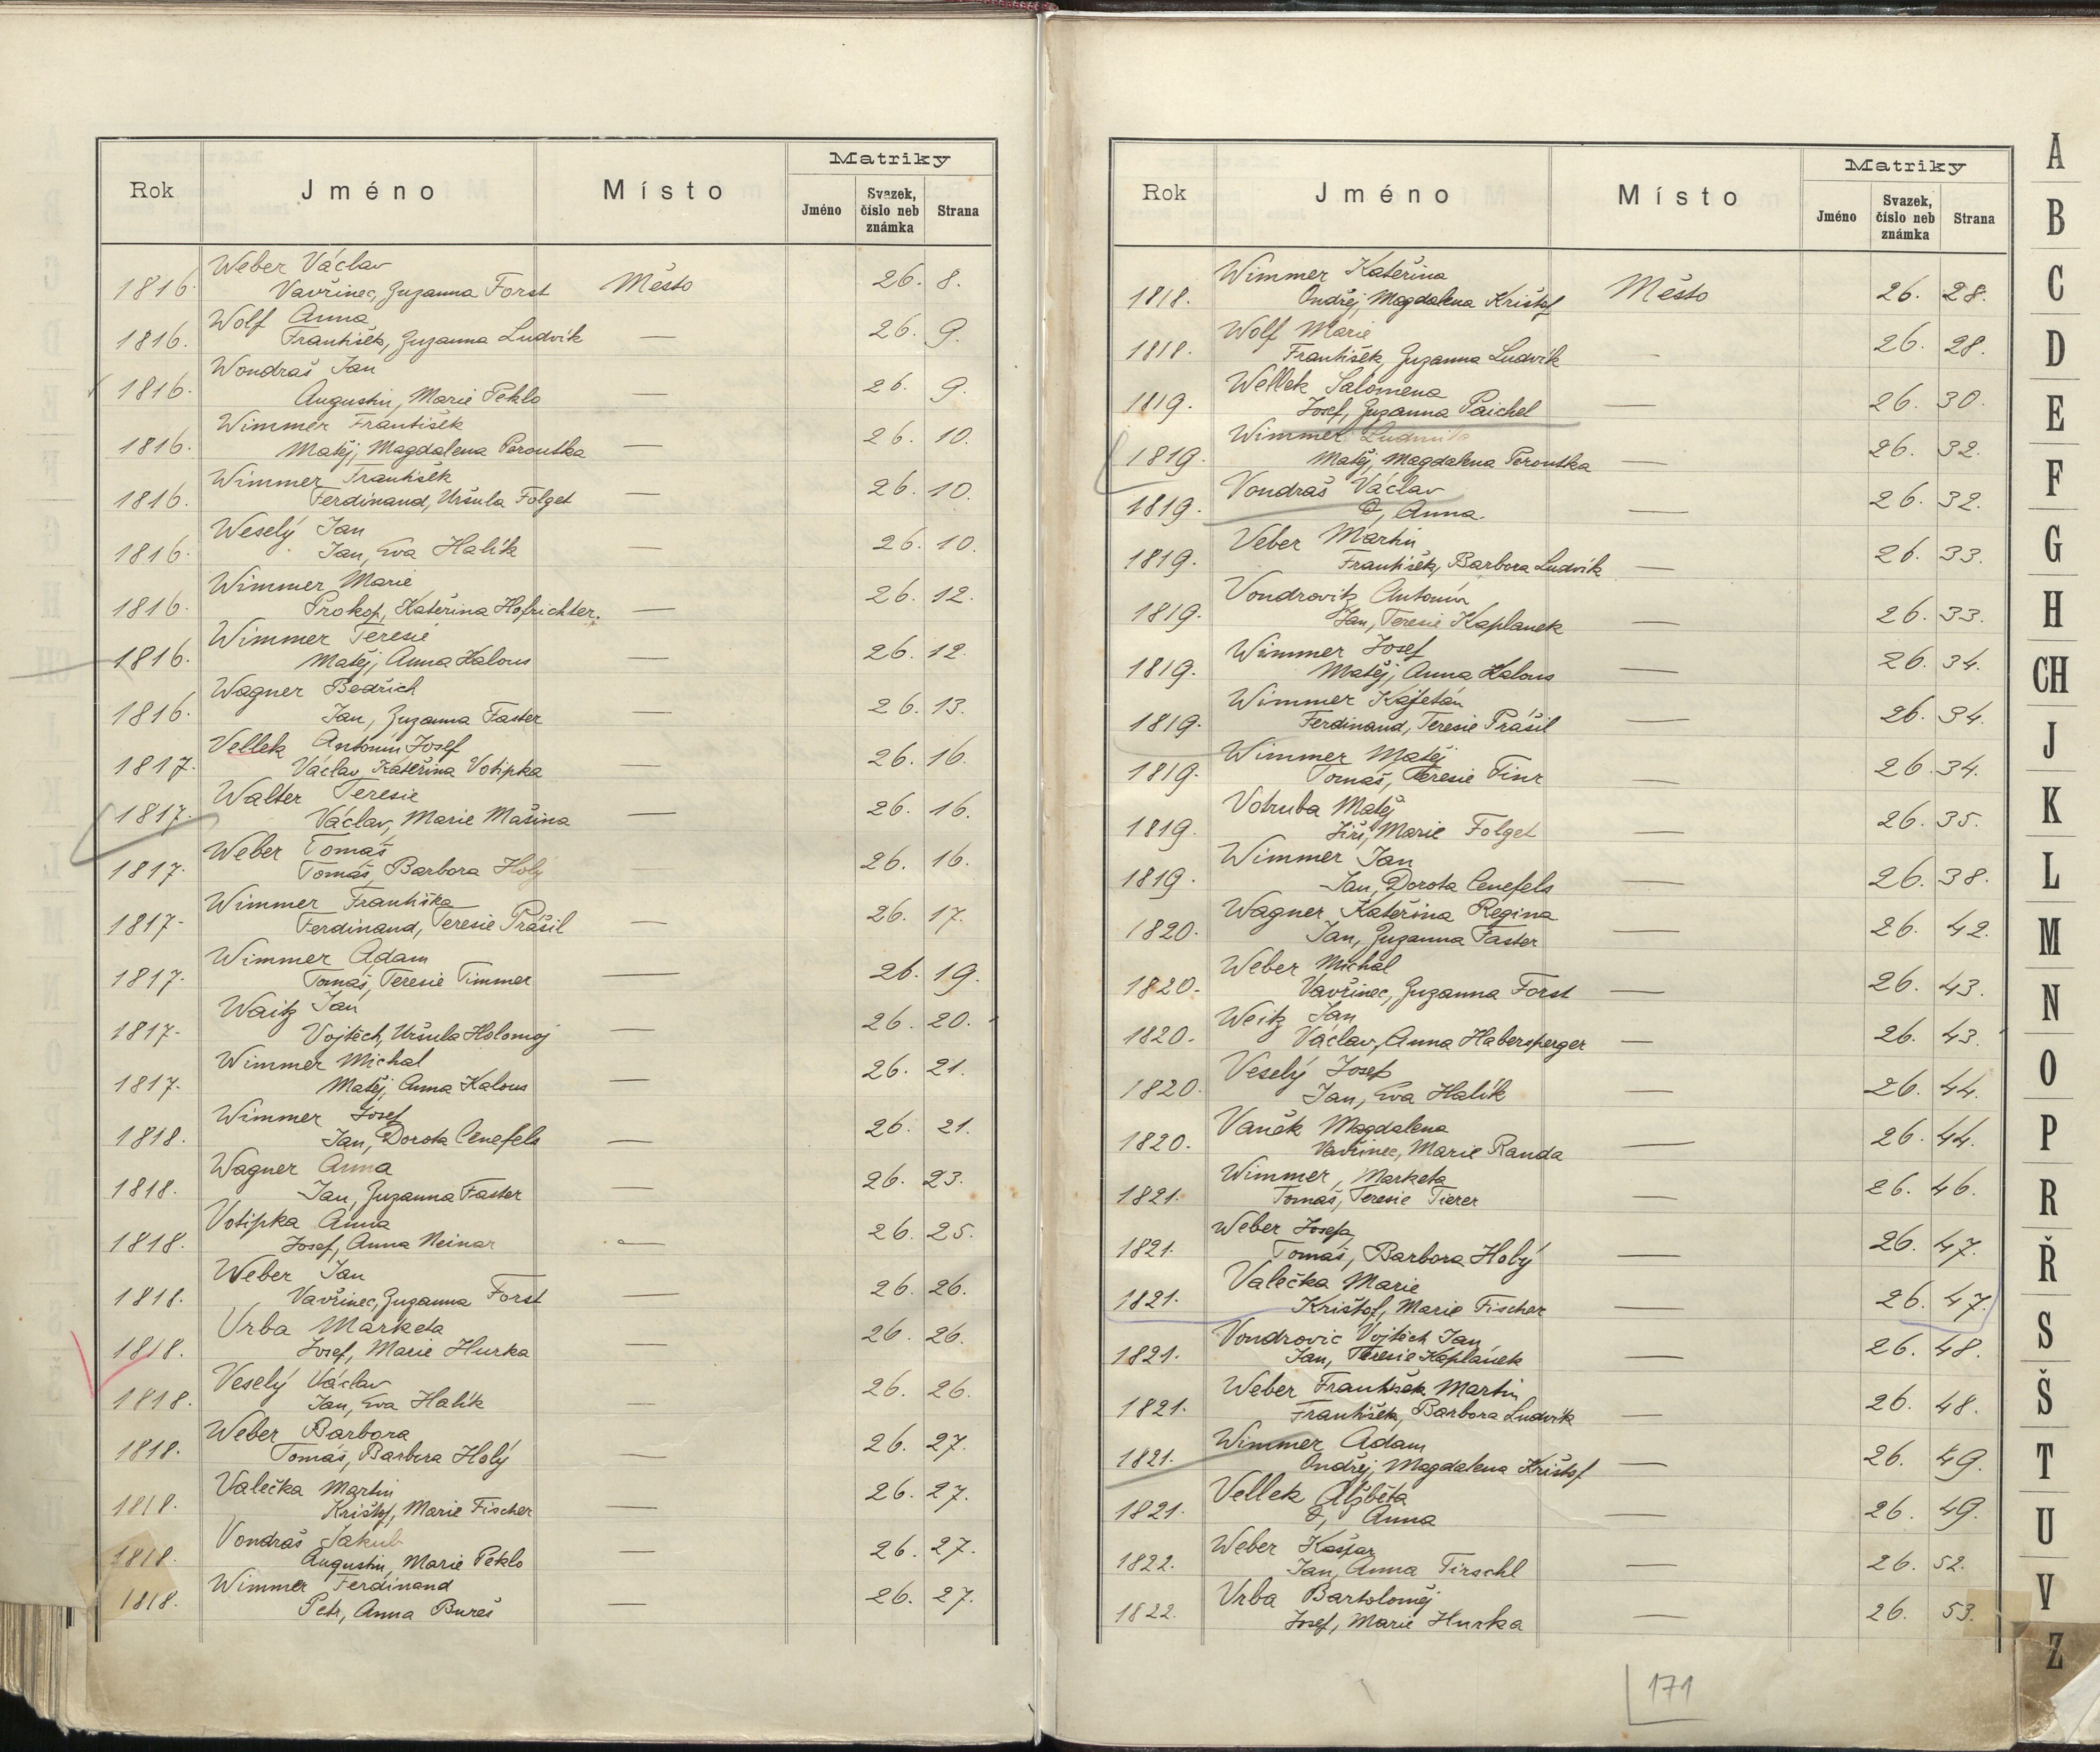 Rok Jméno Místo Matriky
Jméno Svazek, číslo neb známka Strana
Weber Václav
1816. Vavřinec, Zuzanna Forst Město 26. 8.
Wolf Anna
1816. František, Zuzanna Ludvík — 26. 9.
Wondraš Jan
1816. Augustin, Marie Peklo — 26. 9.
Wimmer František
1816. Matěj, Magdalena Peroutka — 26. 10.
Wimmer František
1816. Ferdinand, Uršula Folget — 26. 10.
Weselý Jan
1816. Jan, Eva Halík — 26. 10.
Wimmer Marie
1816. Prokop, Kateřina Hofrichter. — 26. 12.
Wimmer Teresie
1816. Matěj, Anna Kalous — 26. 12.
Wagner Bedřich
1816. Jan, Zuzanna Faster — 26. 13.
Vellek Antonín Josef
1817. Václav, Kateřina Votipka — 26. 16.
Walter Teresie
1817. Václav, Marie Mašina — 26. 16.
Weber Tomáš
1817. Tomáš, Barbora Holý — 26. 16.
Wimmer Františka
1817. Ferdinand, Teresie Prášil — 26. 17.
Wimmer Adam
1817. Tomáš, Teresie Timmer — 26. 19.
Waitz Jan
1817. Vojtěch, Uršula Holomoj — 26. 20.
Wimmer Michal
1817. Matěj, Anna Kalous — 26. 21.
Wimmer Josef
1818. Jan, Dorota Cenefels — 26. 21.
Wagner Anna
1818. Jan, Zuzanna Faster — 26. 23.
Votipka Anna
1818. Josef, Anna Neinar — 26. 25.
Weber Jan
1818. Vavřinec, Zuzanna Forst — 26. 26.
Vrba Marketa
1818. Josef, Marie Hurka — 26. 26.
Veselý Václav
1818. Jan, Eva Halík — 26. 26.
Weber Barbora
1818. Tomáš, Barbora Holý — 26. 27.
Valečka Martin
1818. Krištof, Marie Fischer — 26. 27.
Vondraš Jakub
1818. Augustin, Marie Peklo — 26. 27.
Wimmer Ferdinand
1818. Petr, Anna Bureš — 26. 27.
Rok Jméno Místo Matriky
Jméno Svazek, číslo neb známka Strana
Wimmer Kateřina
1818. Ondřej, Magdalena Krištof Město 26. 28.
Wolf Marie
1818. František, Zuzanna Ludvík — 26. 28.
Wellek Salomena
1819. Josef, Zuzanna Paichel — 26. 30.
Wimmer Ludmila
1819. Matěj, Magdalena Peroutka — 26. 32.
Vondraš Václav
1819. O, Anna. — 26. 32.
Veber Martin
1819. František, Barbora Ludvík — 26. 33.
Vondrovitz Antonín
1819. Jan, Teresie Kaplanek — 26. 33.
Wimmer Josef
1819. Matěj, Anna Kalous — 26. 34.
Wimmer Kajetán
1819. Ferdinand, Teresie Prášil — 26. 34.
Wimmer Matěj
1819. Tomáš, Teresie Tinr — 26. 34.
Votruba Matěj
1819. Jiří, Marie Folget — 26. 35.
Wimmer Jan
1819. Jan, Dorota Cenefels — 26. 38.
Wagner Kateřina Regina
1820. Jan, Zuzanna Faster — 26. 42.
Weber Michal
1820. Vavřinec, Zuzanna Forst — 26. 43.
Weitz Jan
1820. Václav, Anna Habersperger — 26. 43.
Veselý Josef
1820. Jan, Eva Halík — 26. 44.
Vaněk Magdalena
1820. Vavřinec, Marie Randa — 26. 44.
Wimmer, Marketa
1821. Tomáš, Teresie Tierer — 26. 46.
Weber Josefa
1821. Tomáš, Barbora Holý — 26. 47.
Valečka Marie
1821. Krištof, Marie Fischer — 26. 47.
Vondrovic Vojtěch Jan
1821. Jan, Teresie Kaplánek — 26. 48.
Weber František Martin
1821. František, Barbora Ludvík — 26. 48.
Wimmer Adam
1821. Ondřej, Magdalena Krištof — 26. 49.
Vellek Alžběta
1821. O, Anna — 26. 49.
Weber Kašpar
1822. Jan, Anna Tirschl — 26. 52.
Vrba Bartoloměj
1822. Josef, Marie Hurka — 26. 53.
171
A
B
C
D
E
F
G
H
CH
J
K
L
M
N
O
P
R
Ř
S
Š
T
U
V
Z